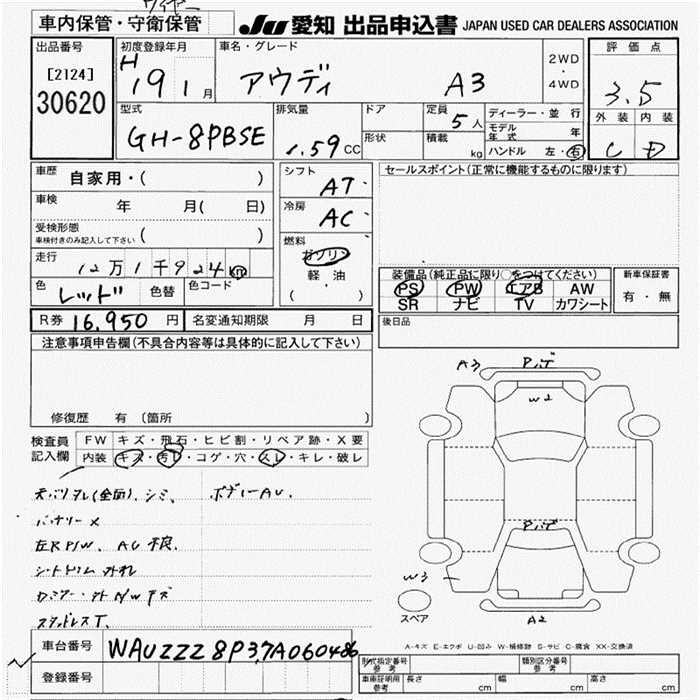 ワイヤー
車内保管・守衛保管
JU 愛知 出品申込書 JAPAN USED CAR DEALERS ASSOCIATION
出品番号
[2124]
30620
初度登録年月
H 19 1 月
車名・グレード
アウディ A3
2WD
・
4WD
評価点
3.5
外装 内装
C D
型式
GH-8PBSE
排気量
1.59 CC
ドア
形状
定員
5人
積載
kg
ディーラー・並行
モデル年式 年
ハンドル 左・右
車歴
自家用・( )
車検
年 月( 日)
受検形態
車検付きのみ記入して下さい ( )
走行
12万1千924km
色
レッド
色替
色コード
シフト
AT
冷房
AC
燃料
ガソリン
軽・油
( )
セールスポイント(正常に機能するものに限ります)
装備品(純正品に限り○をつけてください)
PS PW エアB AW
SR ナビ TV カワシート
新車保証書
有・無
後日品
R券 16,950 円
名変通知期限 月 日
注意事項申告欄(不具合内容等は具体的に記入して下さい)
修復歴 有 (箇所 )
検査員
記入欄
FW キズ・飛石・ヒビ割・リペア跡・X要
内装 キズ・汚レ・コゲ・穴・スレ・キレ・破レ
天バリタレ(全面)、シミ、
ボディーAU.
バッテリーX
左R P/W、AC不良.
シートリム外れ
スタッドレスT、
A3 Pバゲ
W2
Pバゲ
W3
A2
スペア
A-キズ E-エクボ U-凹み W-補修跡 S-サビ C-腐食 XX-交換済
車台番号
WAUZZZ8P37A060486
登録番号
形式指定番号
参考
類別区分番号
参考
車庫証明用
参考
長さ cm
幅 cm
高さ cm